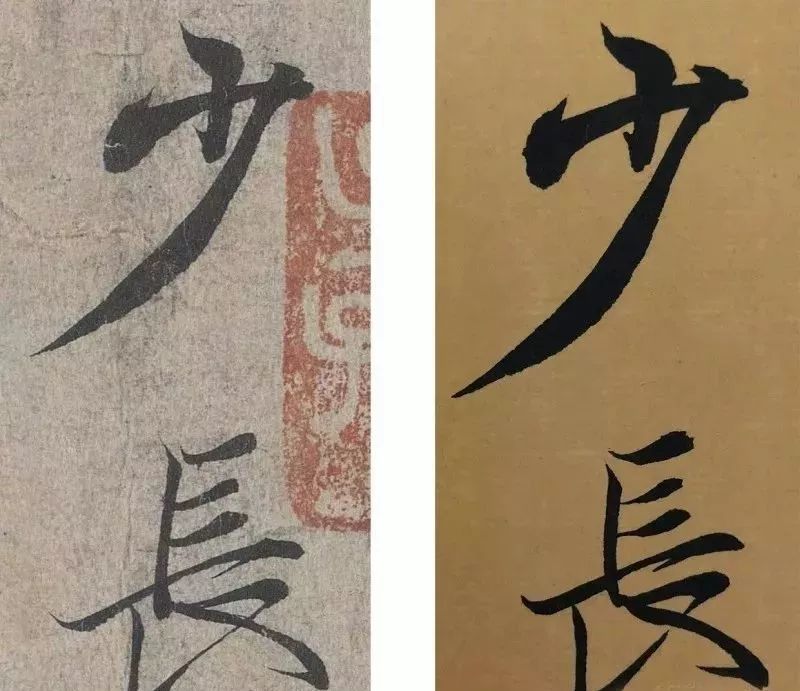 少長
少長